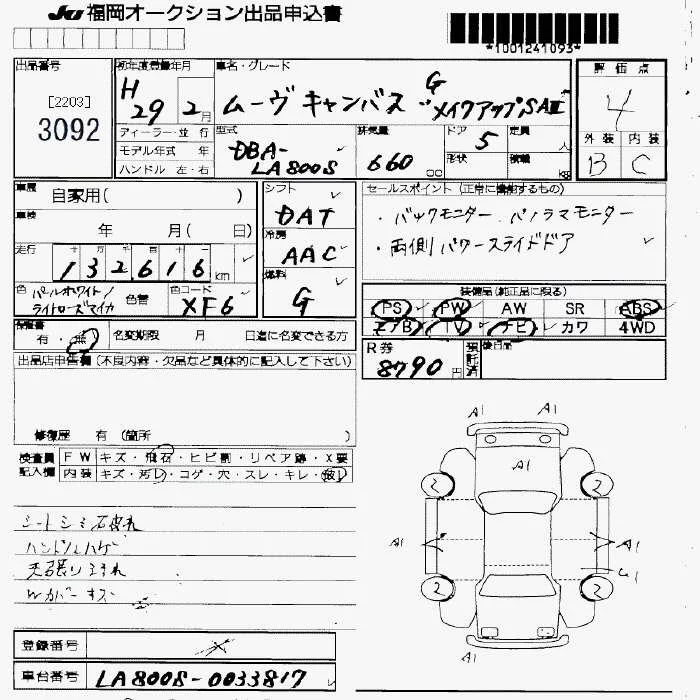 JU 福岡オークション出品申込書
*1001241093*
出品番号
[2203]
3092
初年度登録年月
H 29 2月
車名・グレード
ムーヴ キャンバス G "メイクアップSAⅡ
評価点
4
外装 内装
B C
ディーラー・並行
モデル年式 年
ハンドル 左・右
型式
DBA-
LA800S
排気量
660 cc
ドア 5
形状
定員 人
積載 kg
車歴 自家用( )
車検 年 月( 日)
走行 132,616 km
色 パールホワイト/
ライトローズマイカ
色替
色コード
XF6
シフト
DAT
冷房
AAC
燃料
G
セールスポイント (正常に機能するもの)
・バックモニター、パノラマモニター
・両側パワースライドドア
装備品(純正品に限る)
PS PW AW SR ABS
エアB TV ナビ カワ 4WD
R券
8790円
預託済
後日品
保証書 有・無
名変期限 月 日迄に名変できる方
出品店申告欄(不良内容・欠品など具体的に記入して下さい)
修復歴 有 (箇所 )
検査員
記入欄
FW キズ・飛石・ヒビ割・リペア跡・X要
内装 キズ・汚れ・コゲ・穴・スレ・キレ・破れ
シートシミ 破れ
ハンドルハゲ
天張り汚れ
Wカバーキズ
A1 A1
A1
2 2
A1 A1
2 2
A1
登録番号
車台番号 LA800S-0033817